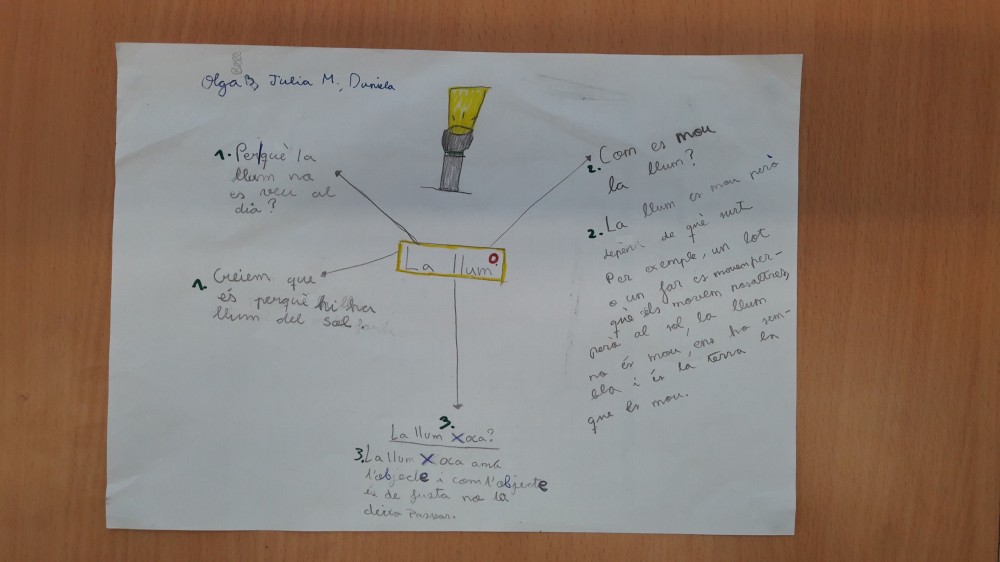 Olga B, Julia M., Daniela
1. Perquè la
llum no
es veu al
dia?
1. Creiem que
és perquè hi ha
llum del sol
La llum
2. Com es mou
la llum?
2. La llum es mou però
depèn de què surt
Per exemple, un lot
o un far es mouen per-
què els movem nosaltres,
però al sol, la llum
no és mou, ens ho sem-
bla i és la terra en
que es mou.
3.
La llum Xoca?
3. La llum Xoca amb
l'objecte i com l'objecte
és de fusta no la
deixa passar.